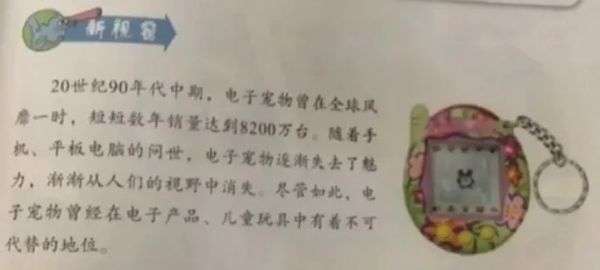 新视窗
20世纪90年代中期，电子宠物曾在全球风
靡一时，短短数年销量达到8200万台。随着手
机、平板电脑的问世，电子宠物逐渐失去了魅
力，渐渐从人们的视野中消失。尽管如此，电
子宠物曾经在电子产品、儿童玩具中有着不可
代替的地位。